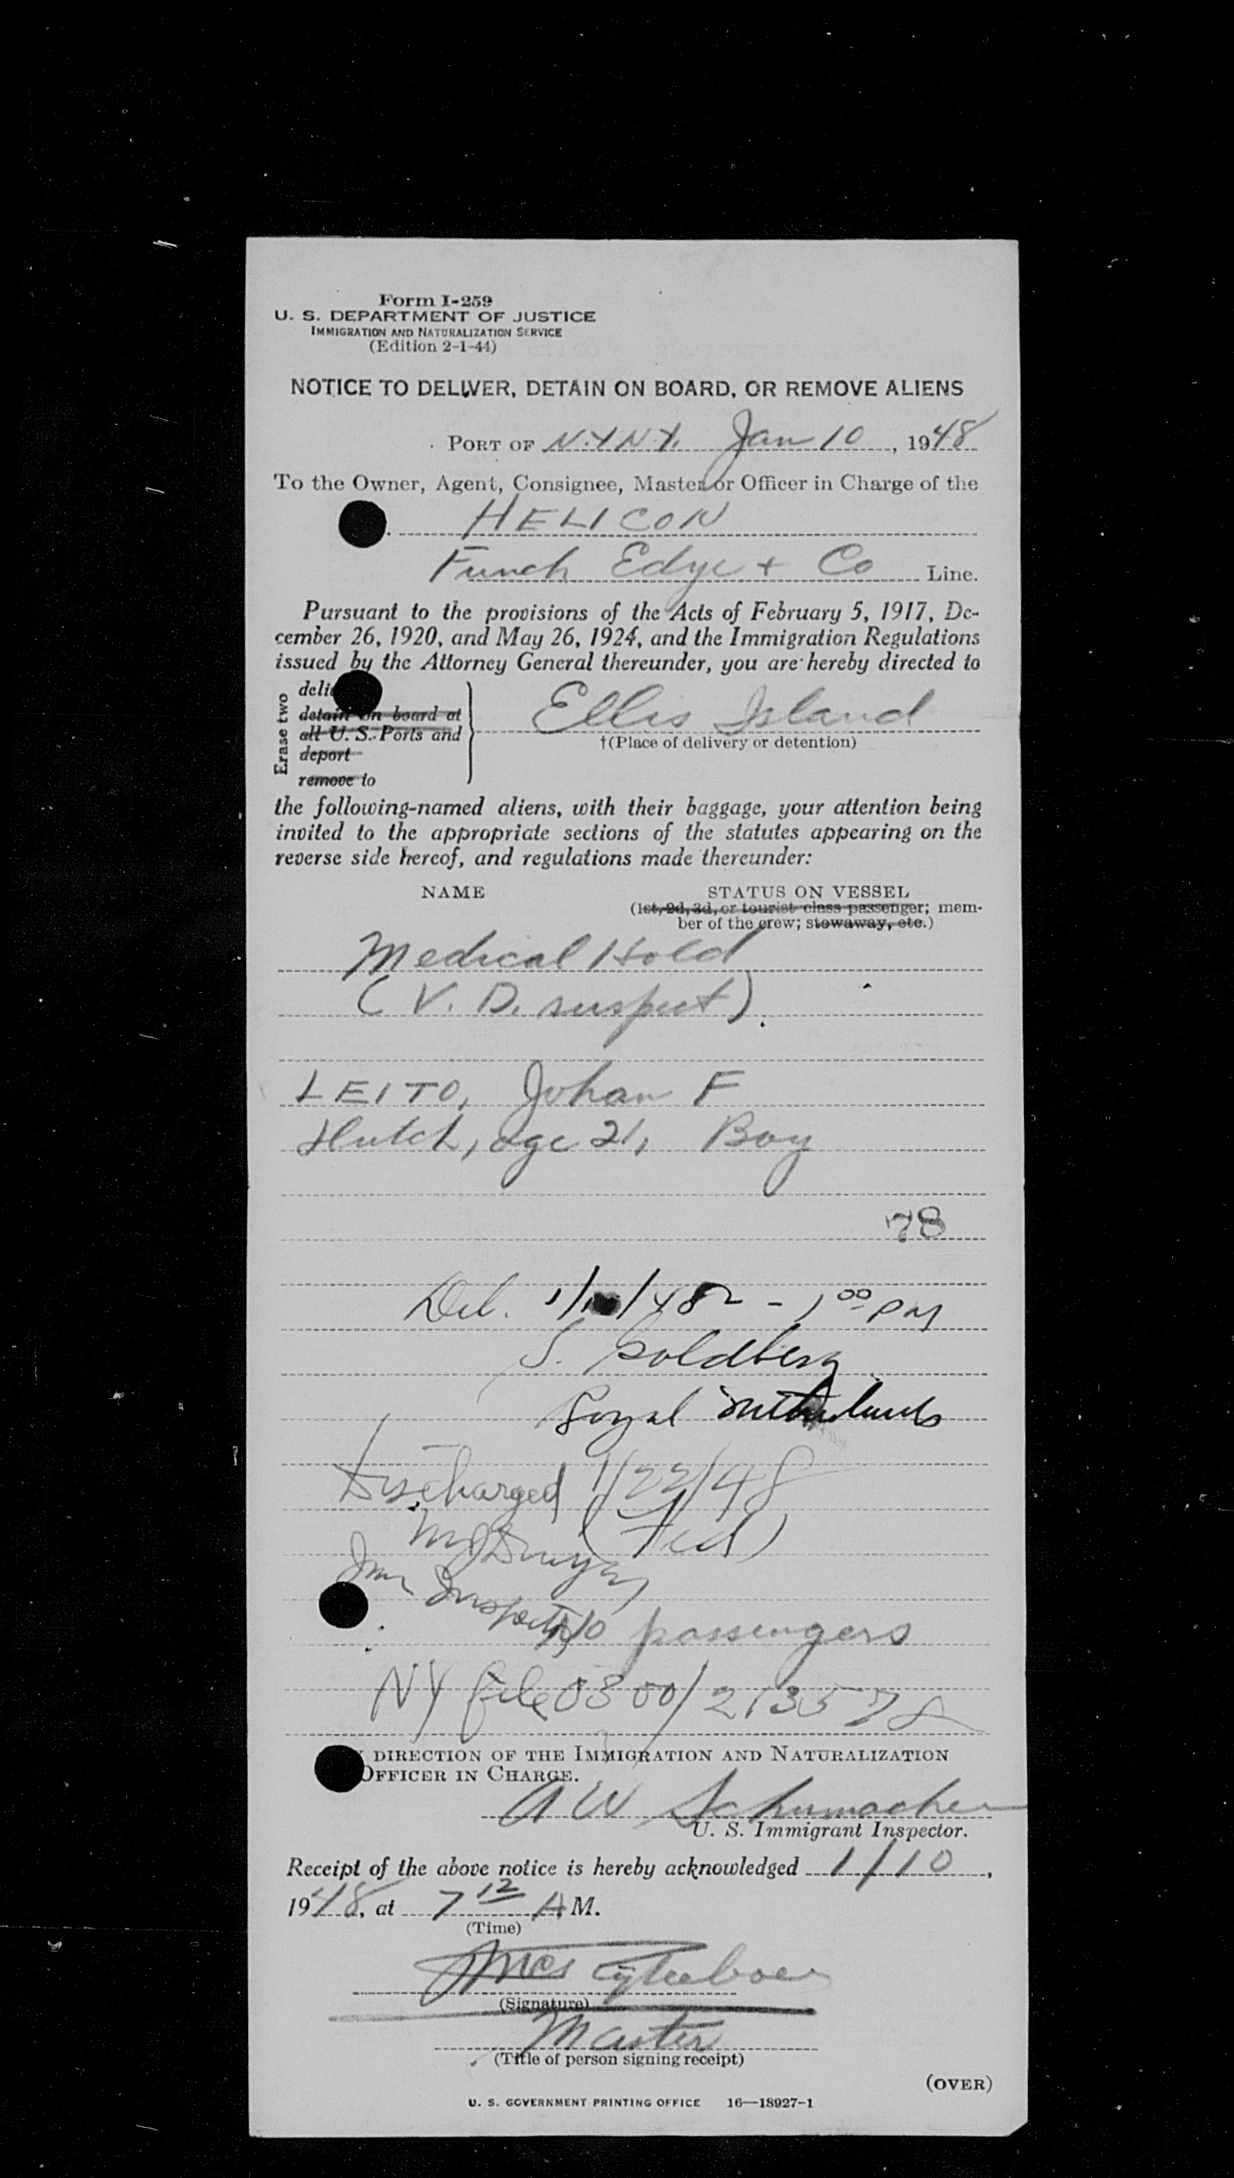 Form I-259
U. S. DEPARTMENT OF JUSTICE
IMMIGRATION AND NATURALIZATION SERVICE
(Edition 2-1-44)
NOTICE TO DELIVER, DETAIN ON BOARD, OR REMOVE ALIENS
PORT OF N.Y.N.Y. Jan 10, 1948
To the Owner, Agent, Consignee, Master or Officer in Charge of the
HELICON
Funch Edye + Co Line.
Pursuant to the provisions of the Acts of February 5, 1917, De-
cember 26, 1920, and May 26, 1924, and the Immigration Regulations
issued by the Attorney General thereunder, you are hereby directed to
Erase two
deli
detain on board at
all U. S. Ports and
deport
remove to
Ellis Island
†(Place of delivery or detention)
the following-named aliens, with their baggage, your attention being
invited to the appropriate sections of the statutes appearing on the
reverse side hereof, and regulations made thereunder:
NAME STATUS ON VESSEL
(1st, 2d, 3d, or tourist class passenger; mem-
ber of the crew; stowaway, etc.)
Medical Hold
(V. D. suspect)
LEITO, Johan F
Dutch, age 21, Boy
78
Del. 1/10/48 - 1 00 PM
S. Goldberg
Royal Netherlands
Discharged 1/22/48
Imm Inspector
No passengers
NY file 0300/213572
DIRECTION OF THE IMMIGRATION AND NATURALIZATION
OFFICER IN CHARGE.
A W Schumacher
U. S. Immigrant Inspector.
Receipt of the above notice is hereby acknowledged 1/10,
1948, at 7 12 A M.
(Time)
(Signature)
Master
(Title of person signing receipt)
(OVER)
U. S. GOVERNMENT PRINTING OFFICE 16—18927-1